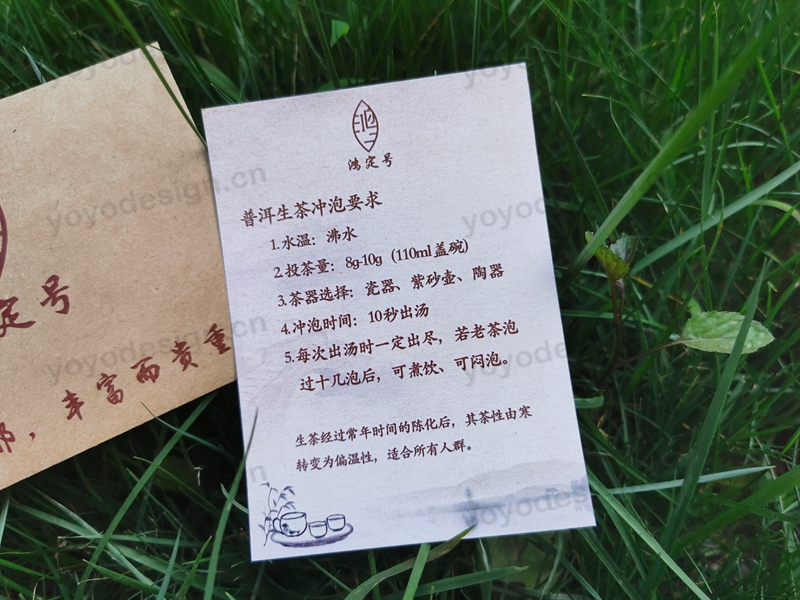 鸿定号
普洱生茶冲泡要求
1.水温：沸水
2.投茶量：8g-10g（110ml 盖碗）
3.茶器选择：瓷器、紫砂壶、陶器
4.冲泡时间：10秒出汤
5.每次出汤时一定出尽，若老茶泡
过十几泡后，可煮饮、可闷泡。
生茶经过常年时间的陈化后，其茶性由寒
转变为偏温性，适合所有人群。
定号
，丰富而贵重
yoyodesign.cn